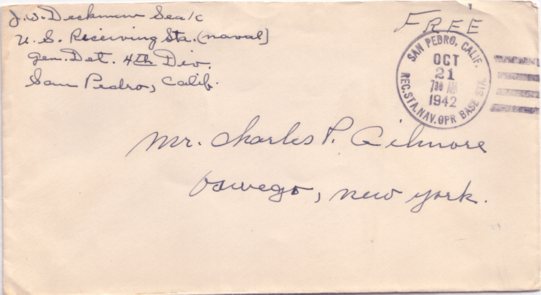 J. W. Deckman Sea/c
U. S. Receiving Sta. (naval)
Gen. Det. 4th Div.
San Pedro, Calif.
FREE
SAN PEDRO, CALIF.
OCT
21
7 30 AM
1942
REC. STA. NAV. OPR BASE STA.
Mr. Charles P. Gilmore
Oswego, New York.